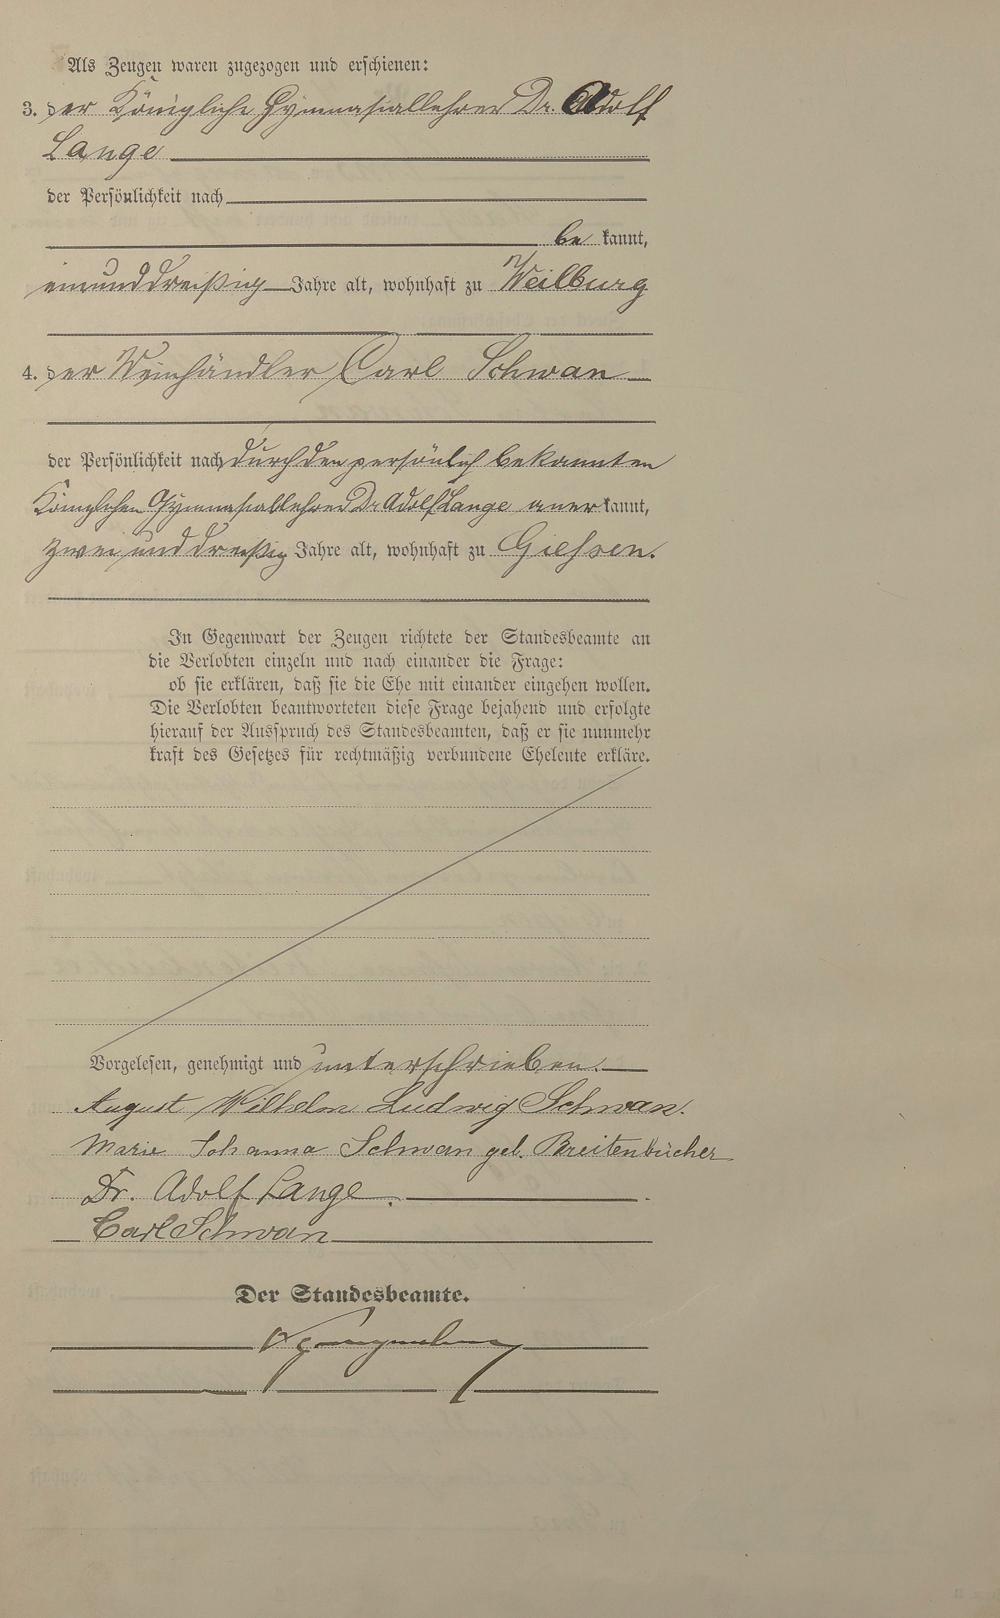 Als Zeugen waren zugezogen und erschienen:
3. der Königliche Gymnasiallehrer Dr. Adolf
Lange
der Persönlichkeit nach
be kannt,
einunddreißig Jahre alt, wohnhaft zu Weilburg
4. der Weinhändler Carl Schwan
der Persönlichkeit nach durch den persönlich bekannten
Königlichen Gymnasiallehrer Dr Adolf Lange aner kannt,
zwei und dreißig Jahre alt, wohnhaft zu Giessen.
In Gegenwart der Zeugen richtete der Standesbeamte an
die Verlobten einzeln und nach einander die Frage:
ob sie erklären, daß sie die Ehe mit einander eingehen wollen.
Die Verlobten beantworteten diese Frage bejahend und erfolgte
hierauf der Ausspruch des Standesbeamten, daß er sie nunmehr
kraft des Gesetzes für rechtmäßig verbundene Eheleute erkläre.
Vorgelesen, genehmigt und unterschrieben.
August Wilhelm Ludwig Schwan.
Marie Johanna Schwan geb. Breitenbücher
Dr. Adolf Lange
Carl Schwan
Der Standesbeamte.